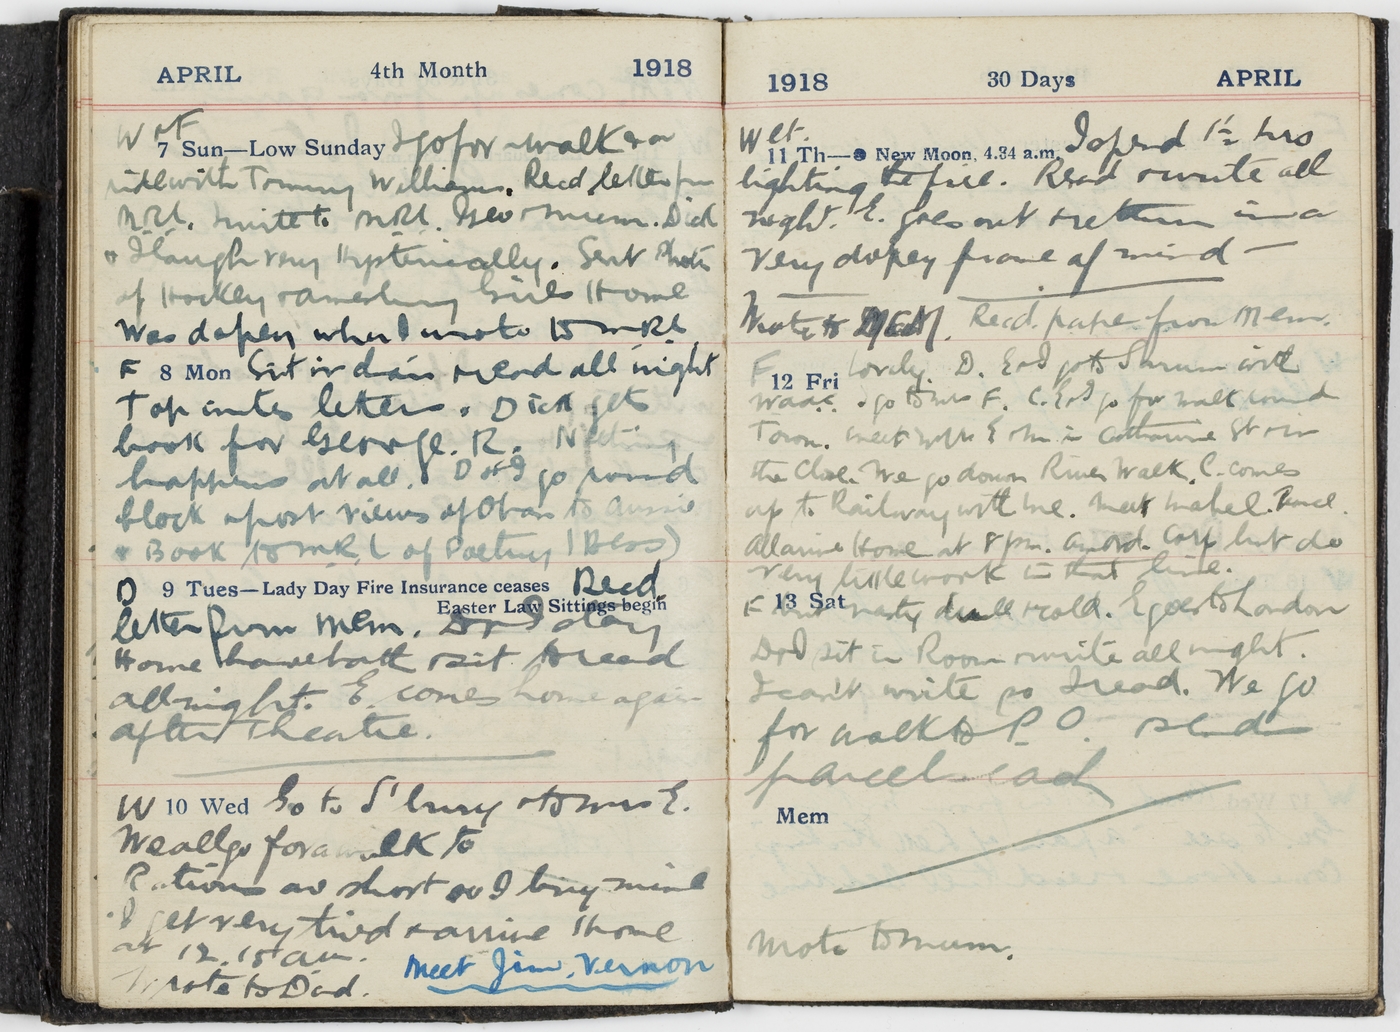 APRIL 4th Month 1918
Wet
7 Sun—Low Sunday I go for a walk & a
ride with Tommy Williams. Recd letter from
MRL. write to MRL. Geo & mum. Dick
& I laugh very hysterically. Sent Photo
of Hockey & Girls Home
Was dopey when I wrote to MRL
F 8 Mon Sit in & read all night
letters. Dick gets
book for George. R. Nothing
happens at all. D & I go round
block & post views of Oban to Aussie
& Book to MRL of Poetry (Bless)
D 9 Tues—Lady Day Fire Insurance ceases Recd
Easter Law Sittings begin
letter from Mem. D & I stay
Home have bath & sit & read
all night. E. comes home again
after Theatre.
W 10 Wed Go to S'bury & to mrs E.
We all go for a walk to
Rations are short so I bring mine
I get very tired & arrive Home
at 12.15 am.
Wrote to Dad. Meet Jim. Vernon
1918 30 Days APRIL
Wet.
11 Th— New Moon, 4.34 a.m. I spend 1½ hrs
lighting the fire. Read & write all
night. E. goes out & return in a
very dopey frame of mind —
Wrote to Recd. paper from Mem.
F Lovely. D. E & I go to Sarum with
12 Fri
Waacs. I go to mrs F. C. E & I go for walk round
Town. meet with E & in Catherine St & in
the Close. We go down River Walk. C. comes
up to Railway with me. Meet Mabel.
& arrive Home at 8 pm. Corp but do
very little work in that line.
F 13 Sat nasty dull & cold. E goes to London
D & I sit in Room & write all night.
I can't write so I read. We go
for walk to P.O. & send
parcel
Mem
Wrote to mum.